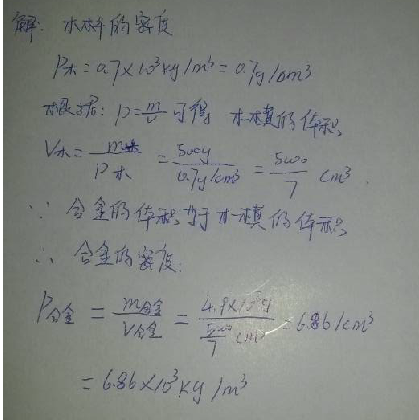 解: 木材的密度
ρ木=0.7×10³kg/m³=0.7g/cm³
根据: ρ=m/v 可得 木模的体积
V木=m木/ρ木=500g/0.7g/cm³=5000/7 cm³.
∵ 合金的体积等于木模的体积
∴ 合金的密度:
ρ合金=m合金/V合金=4.9×10³g/(5000/7 cm³)=6.86/cm³
=6.86×10³kg/m³